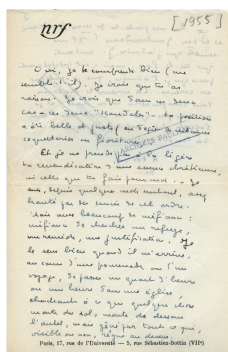 nrf
[1955]
Oui, je te comprends bien (me
semble-t-il). Je crois que tu as
raison. Je crois que dans ce
cas - ces deux "scandales" - ta position
a été belle et juste
coquetteries
Et je ne prends pas à la légère
ta revendication chrétienne,
ni celle que tu fais pour moi. - Je
suis, depuis quelques mois surtout, assez
hanté par des soucis de cet ordre.
Mais avec beaucoup de méfiance :
méfiance de chercher un refuge,
un remède, une justification. Il
le sens bien quand il m'arrive,
au cours d'une promenade ou d'un
voyage, de passer un quart d'heure
ou une heure dans une église,
cherchant à ce que quelque chose
monte du sol, ou descende de
l'autel, mais gêné par tout ce qui,
visible ou non, règne au-dessus
Paris, 17, rue de l'Université — 5, rue Sébastien-Bottin (VIIe)